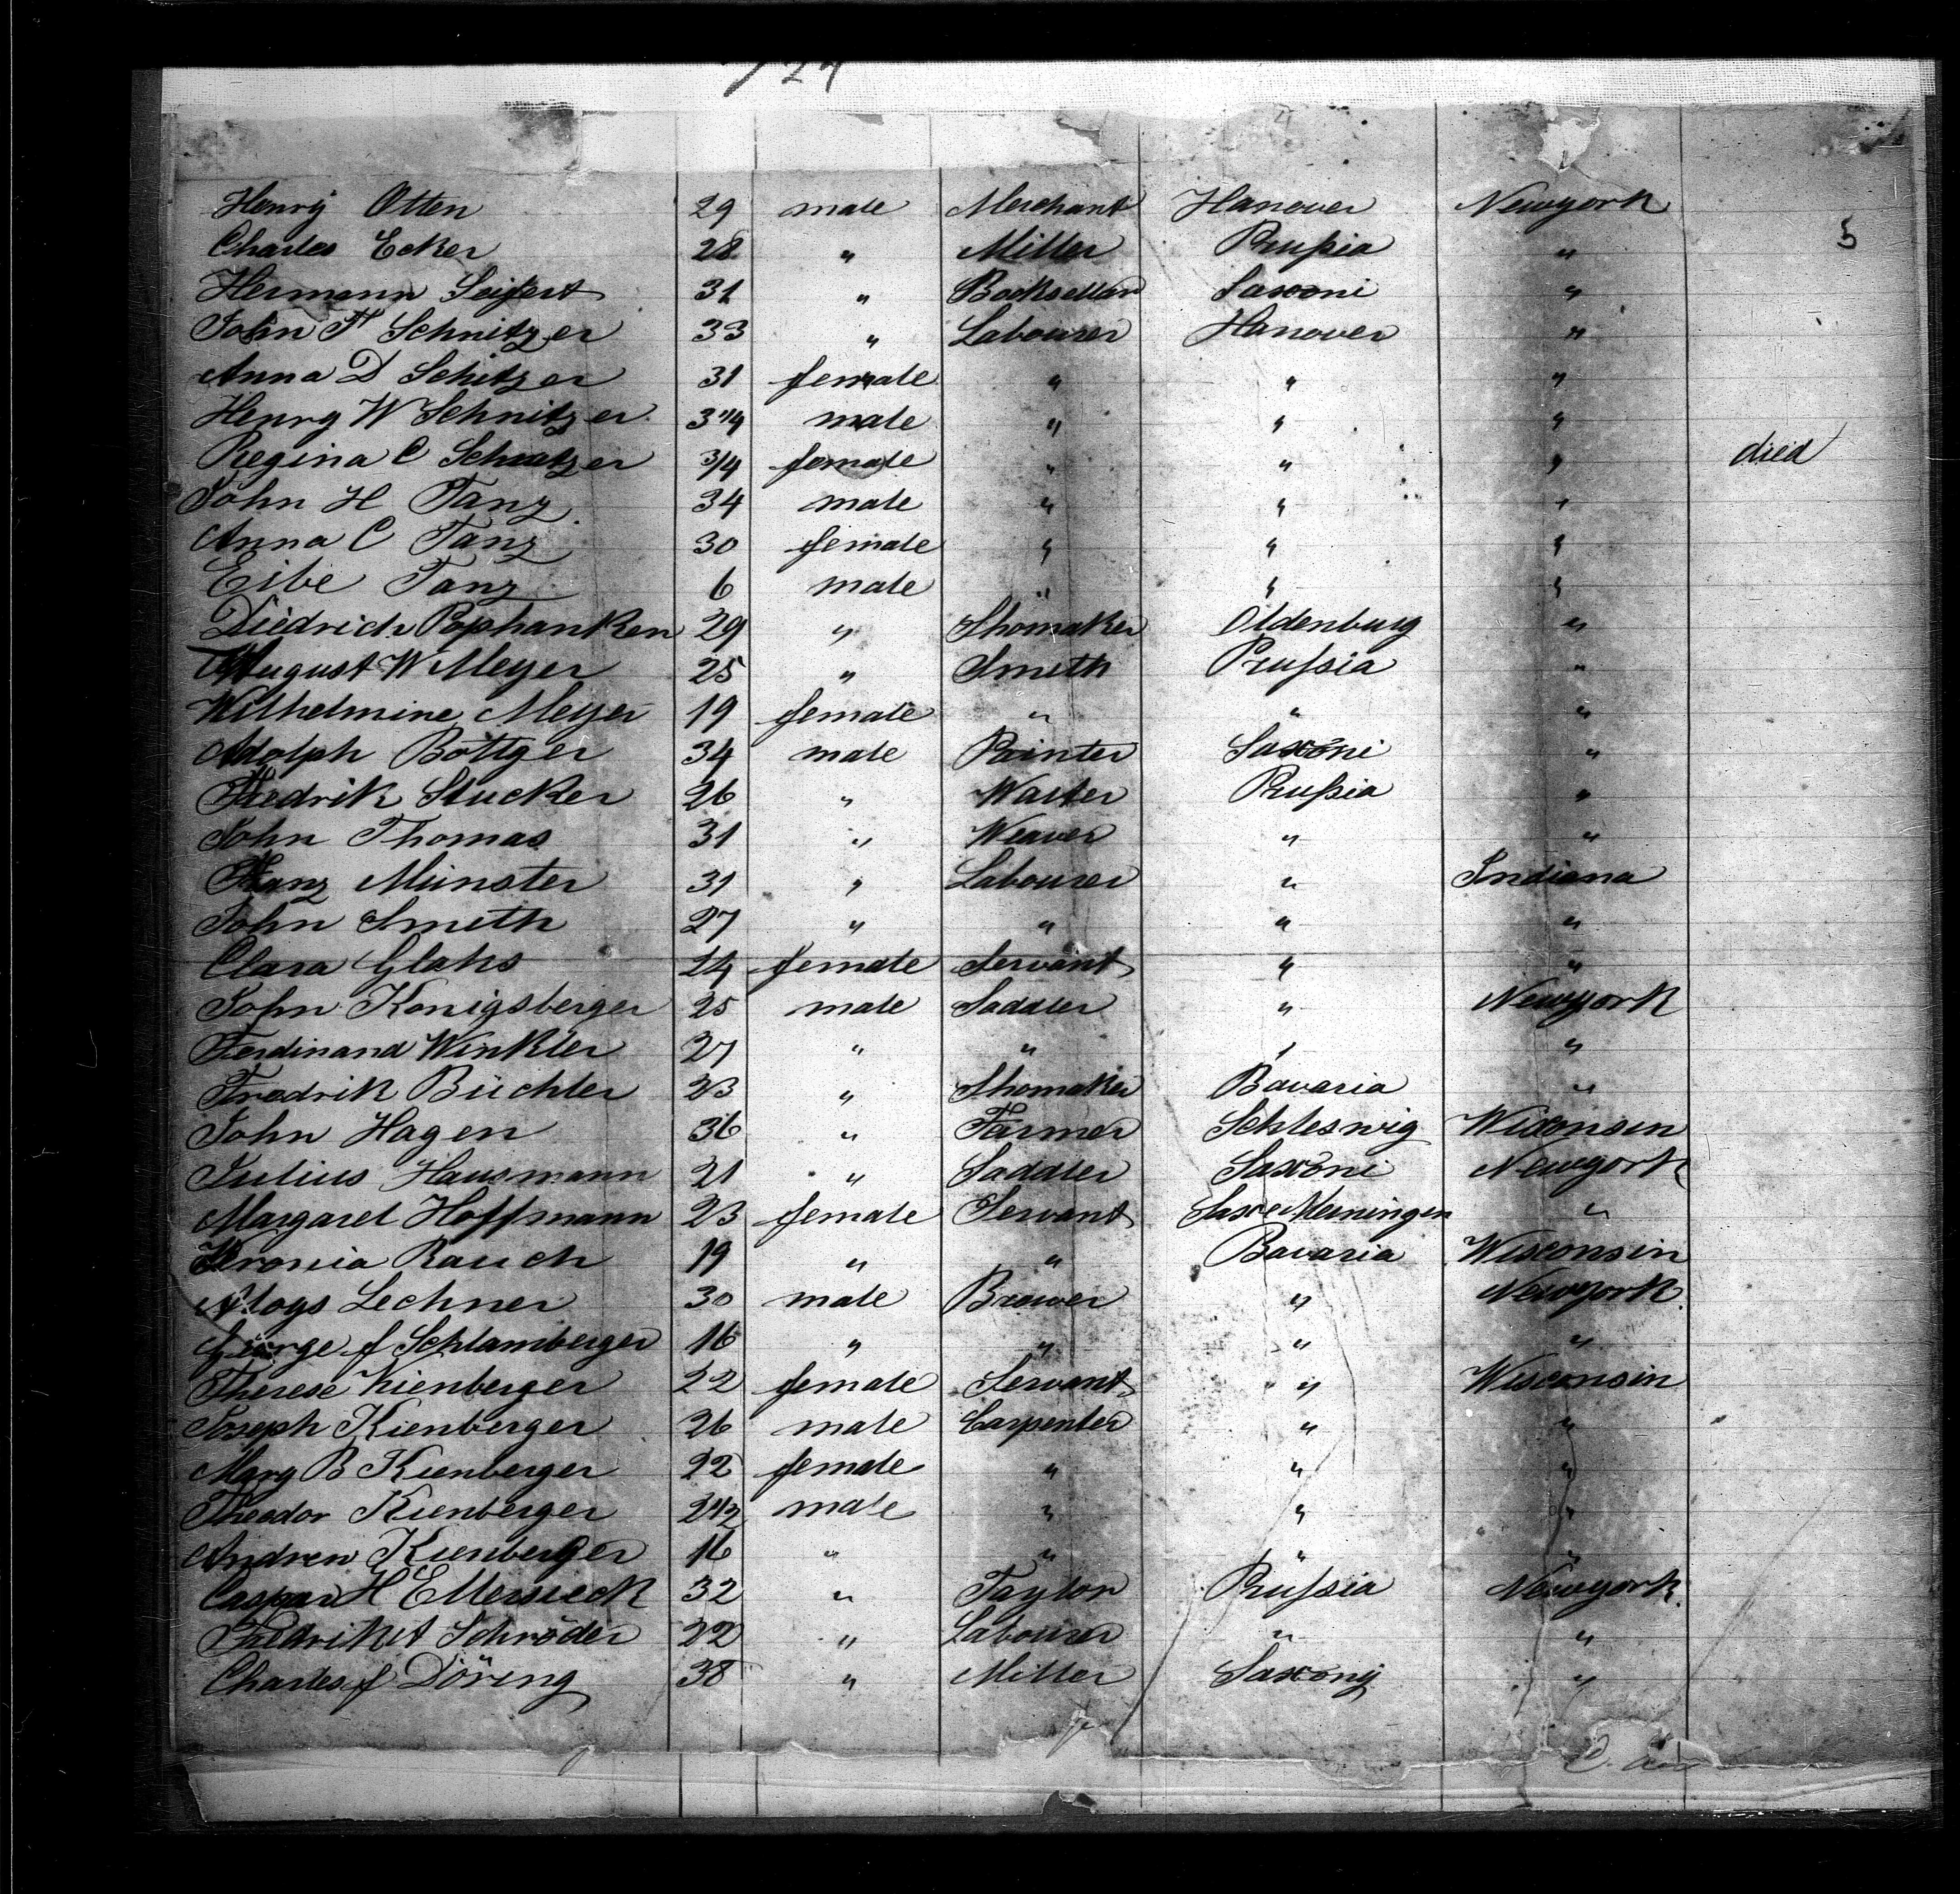 Henry Otten 29 male Merchant Hanover Newyork
5
Charles Ecker 28 " Miller Prußia "
Hermann Seifert 31 " Bookseller Saxoni "
John F Schnitzer 33 " Labourer Hanover "
Anna D Schitzer 31 female " " "
Henry W Schnitzer 3 1/4 male " " "
Regina C Schnitzer 3/4 female " " " died
John H Tanz 34 male " " "
Anna C Tanz 30 female " " "
Eibe Tanz 6 male " " "
Diedrich Pophanken 29 " Shomaker Oldenburg "
August W Meyer 25 " Smeth Prußia "
Wilhelmine Meyer 19 female " " "
Adolph Böttger 34 male Painter Saxoni "
Fredrik Stucker 26 " Waiter Prußia "
John Thomas 31 " Weaver " "
Franz Münster 31 " Labourer " Indiana
John Smeth 27 " " " "
Clara Glahs 24 female Servant " "
John Konigsberger 25 male Saddler " Newyork
Ferdinand Winkler 27 " " " "
Fredrik Büchler 23 " Shomaker Bavaria "
John Hagen 36 " Farmer Schleswig Wisconsin
Julius Hausmann 21 " Saddler Saxoni Newyork
Margaret Hoffmann 23 female Servant Saxe Meiningen "
Veronia Rauch 19 " " Bavaria Wisconsin
Aloys Lechner 30 male Brewer " Newyork
George f Schlamberger 16 " " " "
Therese Kienberger 22 female Servant " Wisconsin
Joseph Kienberger 26 male Carpenter " "
Mary B Kienberger 22 female " " "
Theodor Kienberger 2 1/2 male " " "
Andrew Kienberger 16 " " " "
Caspar H Ellersieck 32 " Taylor Prußia Newyork
Fredrik A Schröder 22 " Labourer " "
Charles f Döring 38 " Miller Saxony "